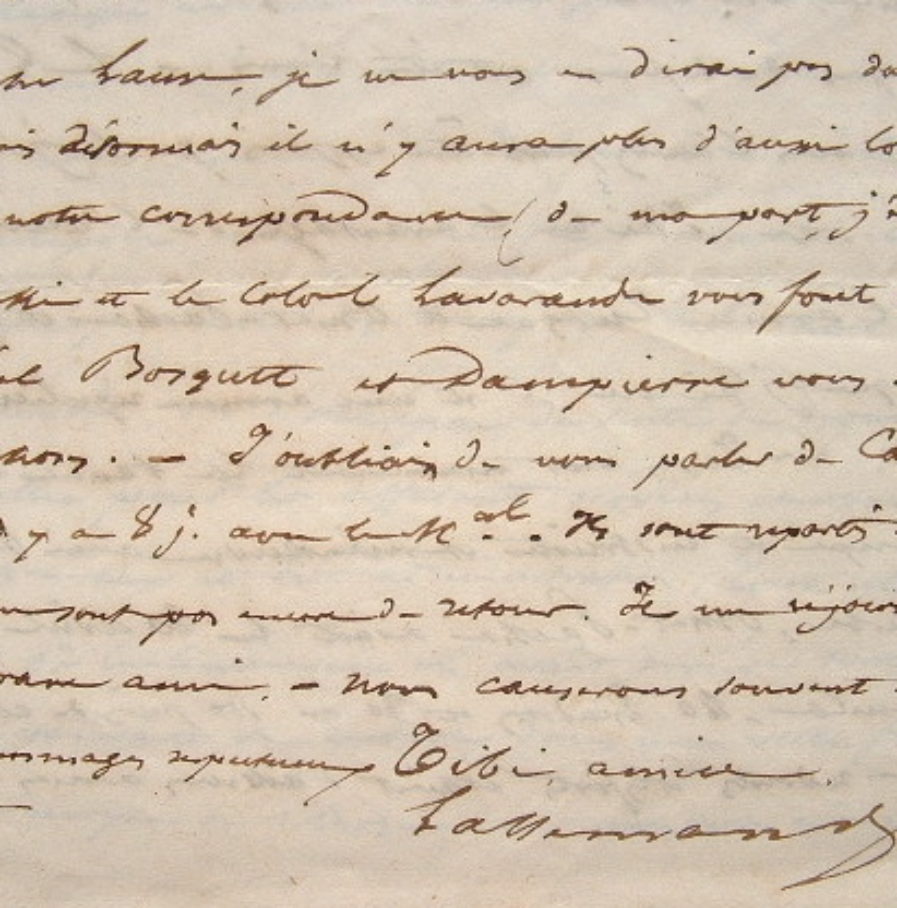 je ne vous en dirai pas da
is désormais il n'y aura plus d'aussi lo
notre correspondance (de ma part, j'
et le Colonel Lavarande vous font
Bosquett et Dampierre vous
J'oubliais de vous parler de Ca
y a 8 j. avec le Mal. Ils sont repartis
ne sont pas encore de retour. Je me réjouis
ami. – nous causerons souvent
ommages respectueux Tibi amice.
Lallemand